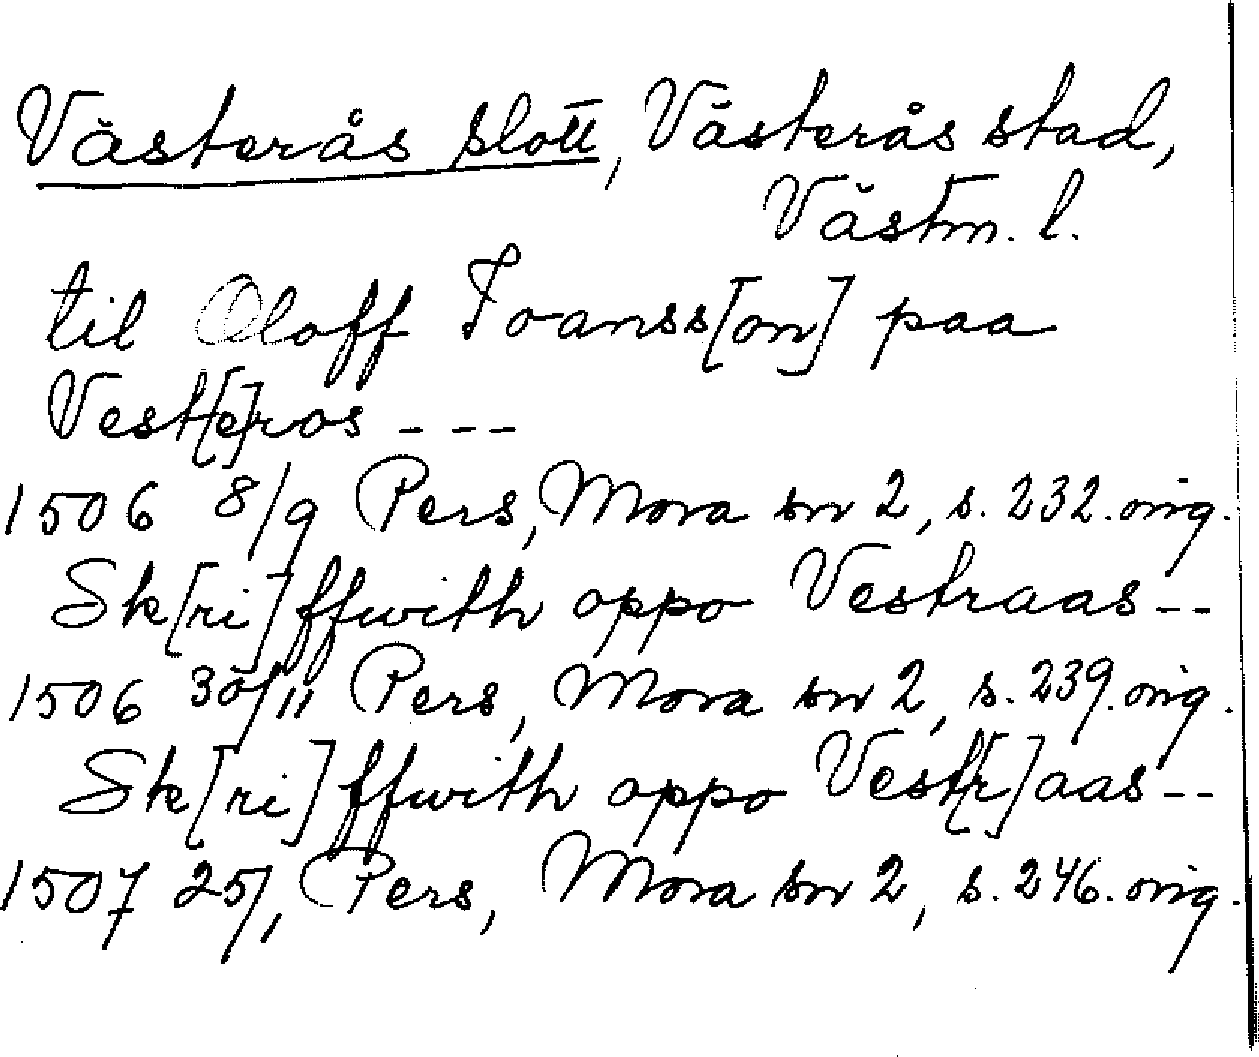 Västerås slott, Västerås stad,
Västm. l.
til Oloff Joanss[on] paa
Vest[e]ros ---
1506 8/9 Pers, Mora sn 2, s. 232. orig.
Sk[ri]ffwith oppo Vestraas --
1506 30/11 Pers, Mora sn 2, s. 239. orig.
Sk[ri]ffwith oppo Vest[r]aas --
1507 25/1 Pers, Mora sn 2, s. 246. orig.